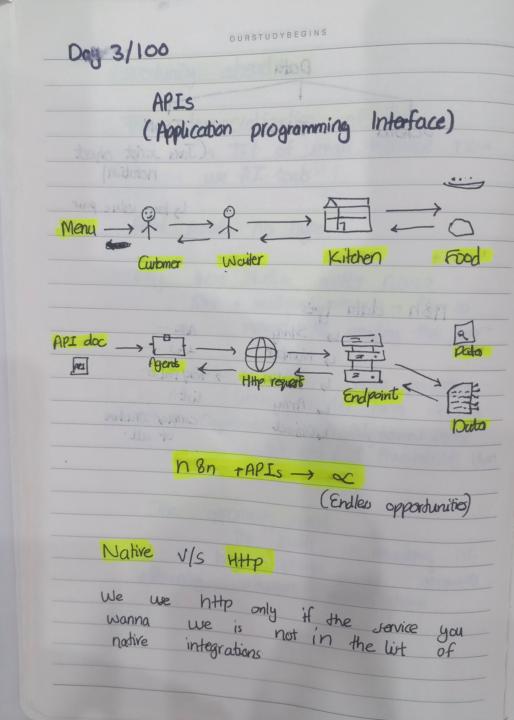 OURSTUDYBEGINS
Day 3/100
APIs
(Application programming Interface)
Menu
Customer Waiter Kitchen Food
API doc
Agents Http request Endpoint Data
Data
n8n + APIs → ∝
(Endless opportunities)
Native v/s Http
We use http only if the service you
wanna use is not in the list of
native integrations